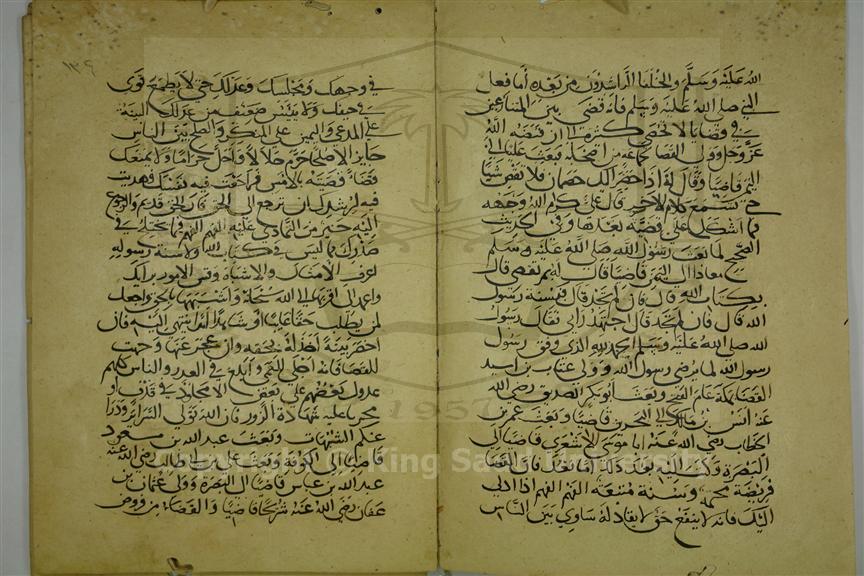 الله عليه وسلم والخلفا الراشدون من بعده أما فعل
النبي صلى الله عليه وسلم فانه قضى بين المتنازعين
في قضايا لا تحصى كثرة
عز وجل وولى القضا جماعه من اصحابه فبعث عليا الى
اليمن قاضيا وقال له اذا حضر اليك خصمان فلا تقض شيا
حتى تسمع كلام الاخر قال علي كرم الله وجهه
فما اشكل علي قضية بعدها وفي الحديث
الصحيح لما بعث رسول الله صلى الله عليه وسلم
معاذا الى اليمن قاضيا قال له بم تقضي قال
بكتاب الله قال فان لم تجد قال فبسنة رسول
الله قال فان لم تجد قال اجتهد رأيي فقال رسول
الله صلى الله عليه وسلم الحمد لله الذي وفق رسول
رسول الله لما يرضي رسول الله وولى عتاب بن اسيد
القضا بمكة عام الفتح وبعث أبو بكر الصديق رضي الله
عنه انس بن مالك الى البحرين قاضيا وبعث عمر بن
الخطاب رضي الله عنه ابا موسى الاشعري قاضيا الى
البصرة وكتب اليه اما بعد فان القضا
فريضة محكمة وسنة متبعة الفهم الفهم اذا ادلي
اليك فانه لا ينفع حق لا نفاذ له ساوي بين الناس
١٣٩
في وجهك ومجلسك وعدلك حتى لا يطمع قوي
في حيفك ولا ييئس ضعيف من عدلك البينة
على المدعي واليمين على المنكر والصلح بين الناس
جايز الا صلحا حرم حلالا واحل حراما ولا يمنعك
قضاء قضيته بالامس فراجعت فيه نفسك فهديت
فيه لرشدك ان ترجع الى الحق فان الحق قديم والرجوع
اليه خير من التمادي عليه الفهم الفهم فيما يختلج في
صدرك مما ليس في كتاب الله ولا سنة رسوله
اعرف الامثال والاشباه وقس الامور برأيك
واعمد الى اقربها الى الله سبحانه واشبهها بالحق واجعل
لمن يطلب حقا غائبا او شاهدا امدا ينتهي اليه فان
احضر بينة اخذ له بحقه وان عجز عنها وجبت
للقضا فانه اجلى للعمى وابلغ في العذر والناس كلهم
عدول بعضهم على بعض الا مجلود في قذف او
مجربا عليه شهادة الزور فان الله تولى السراير ودرا
عنكم الشبهات وبعث عبد الله بن مسعود
قاضيا الى الكوفة وبعث علي بن ابي طالب رضي الله عنه
عبد الله بن عباس قاضيا الى البصرة وولى عثمان بن
عفان رضي الله عنه شريحا قاضيا والقضاء من فروض
Copyright © King Saud University
1957